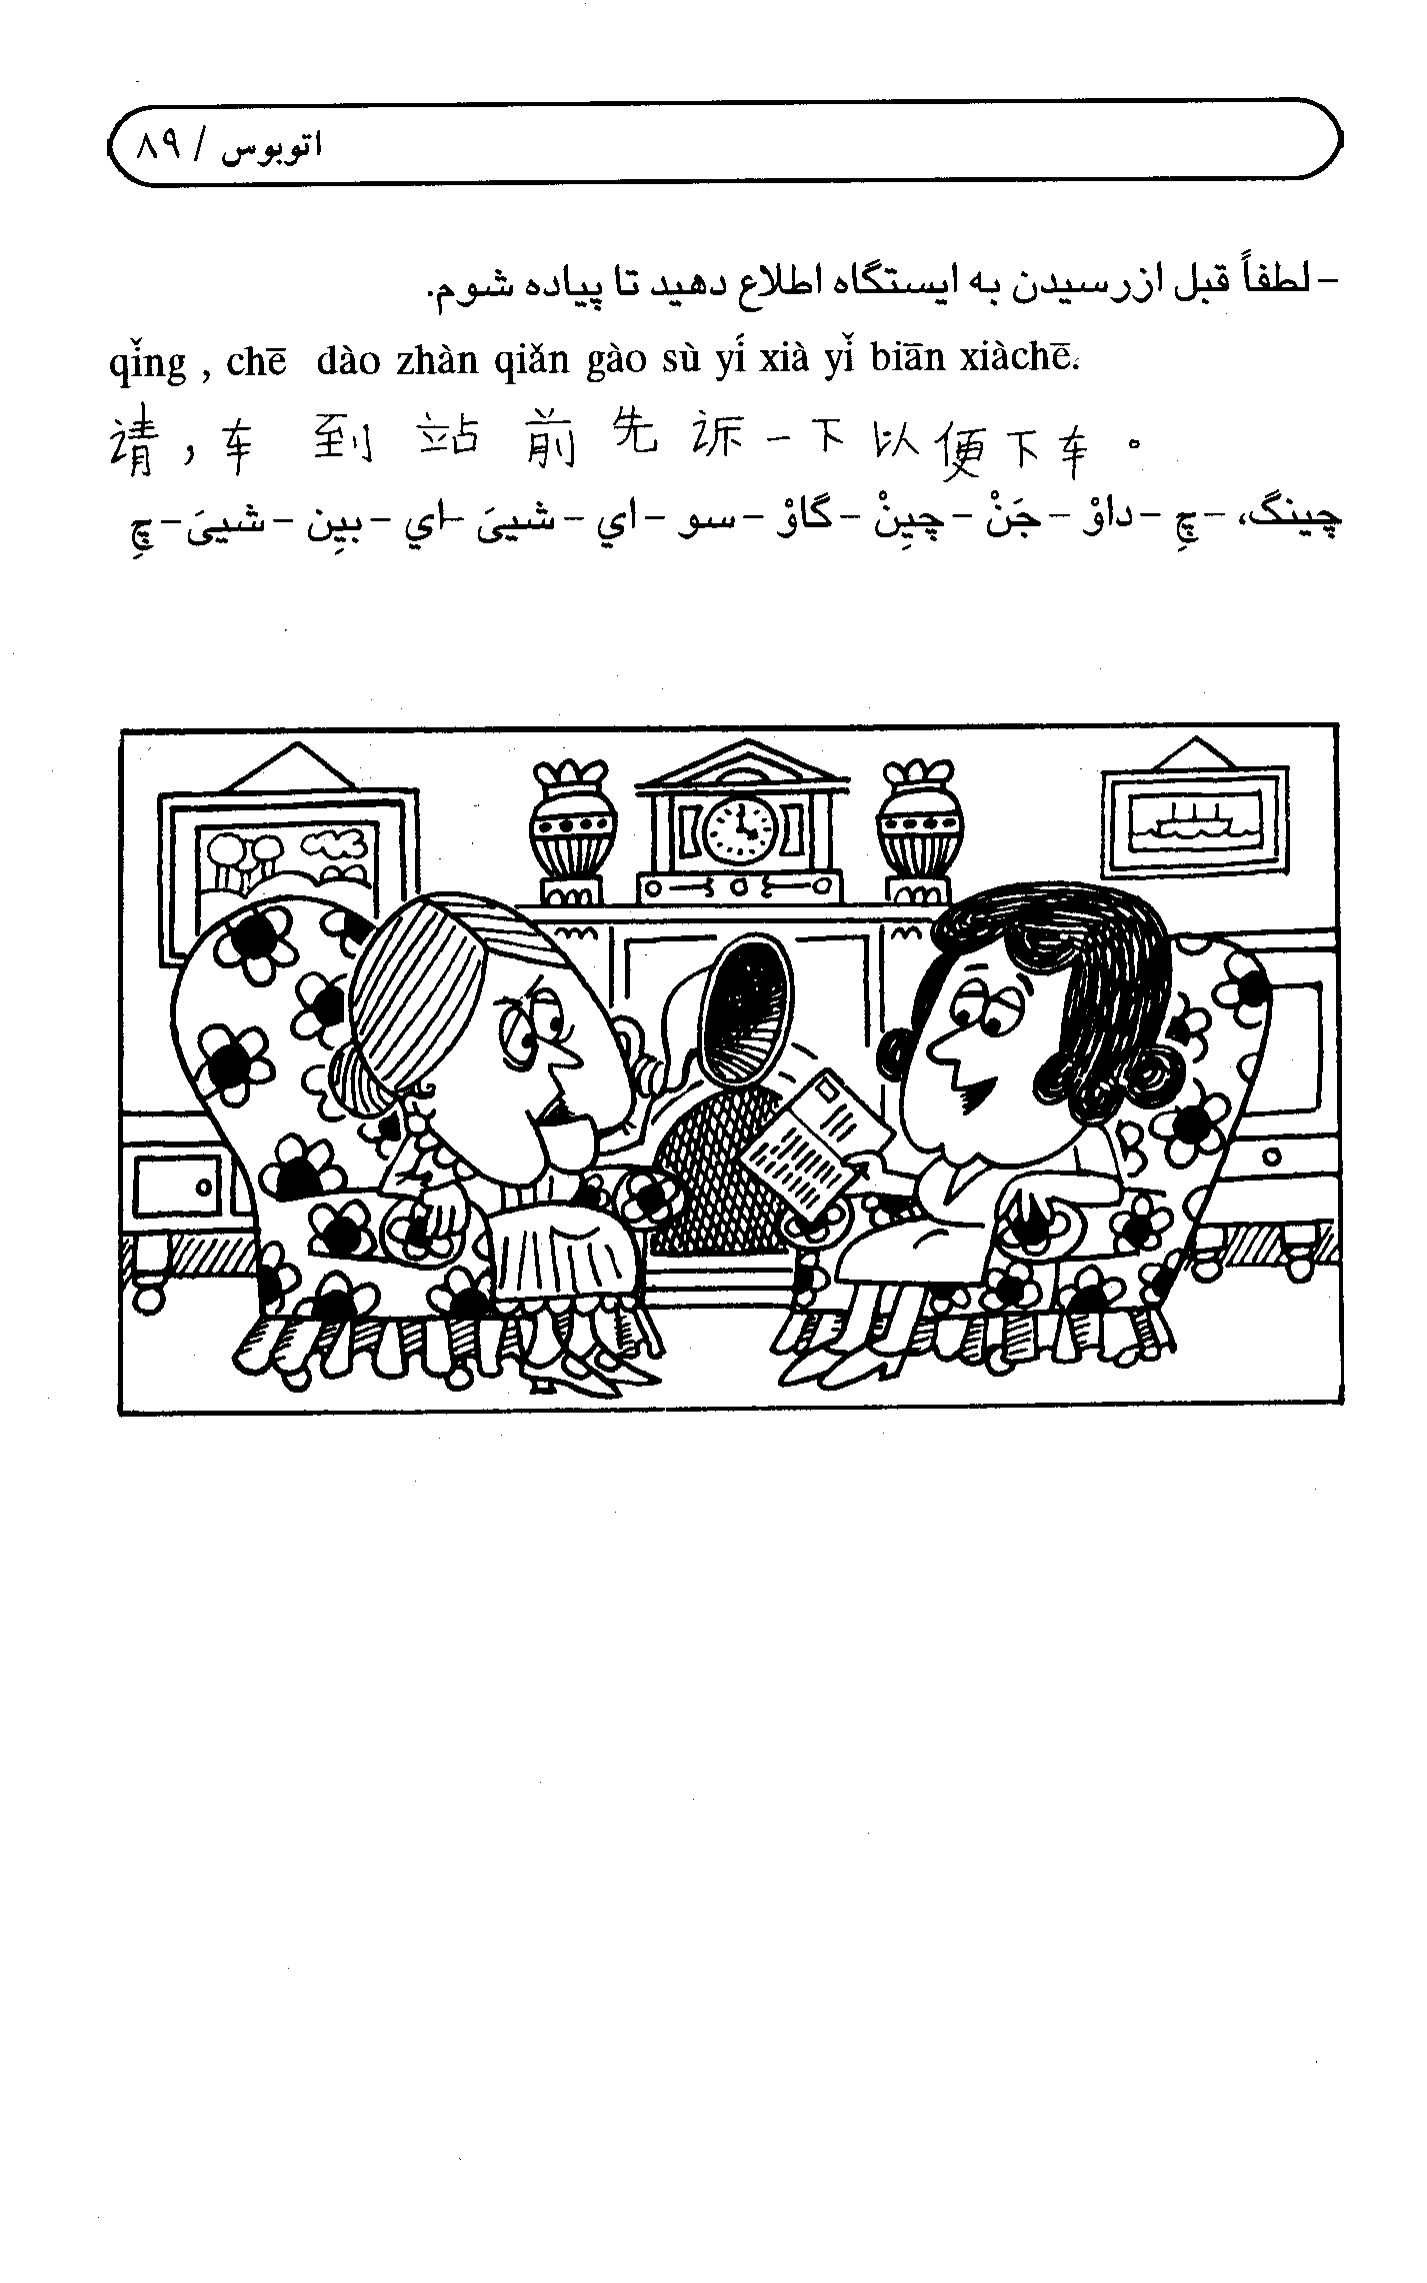 اتوبوس / ۸۹
– لطفاً قبل از رسیدن به ایستگاه اطلاع دهید تا پیاده شوم.
qǐng , chē dào zhàn qiǎn gào sù yí xià yǐ biān xiàchē.
请，车 到 站 前 先 诉 一 下 以 便 下 车 。
چینگ، – چِ – داوْ – جَنْ – چیِنْ – گاوْ – سو – اي – شییَ – اي – بیِن – شییَ – چِ